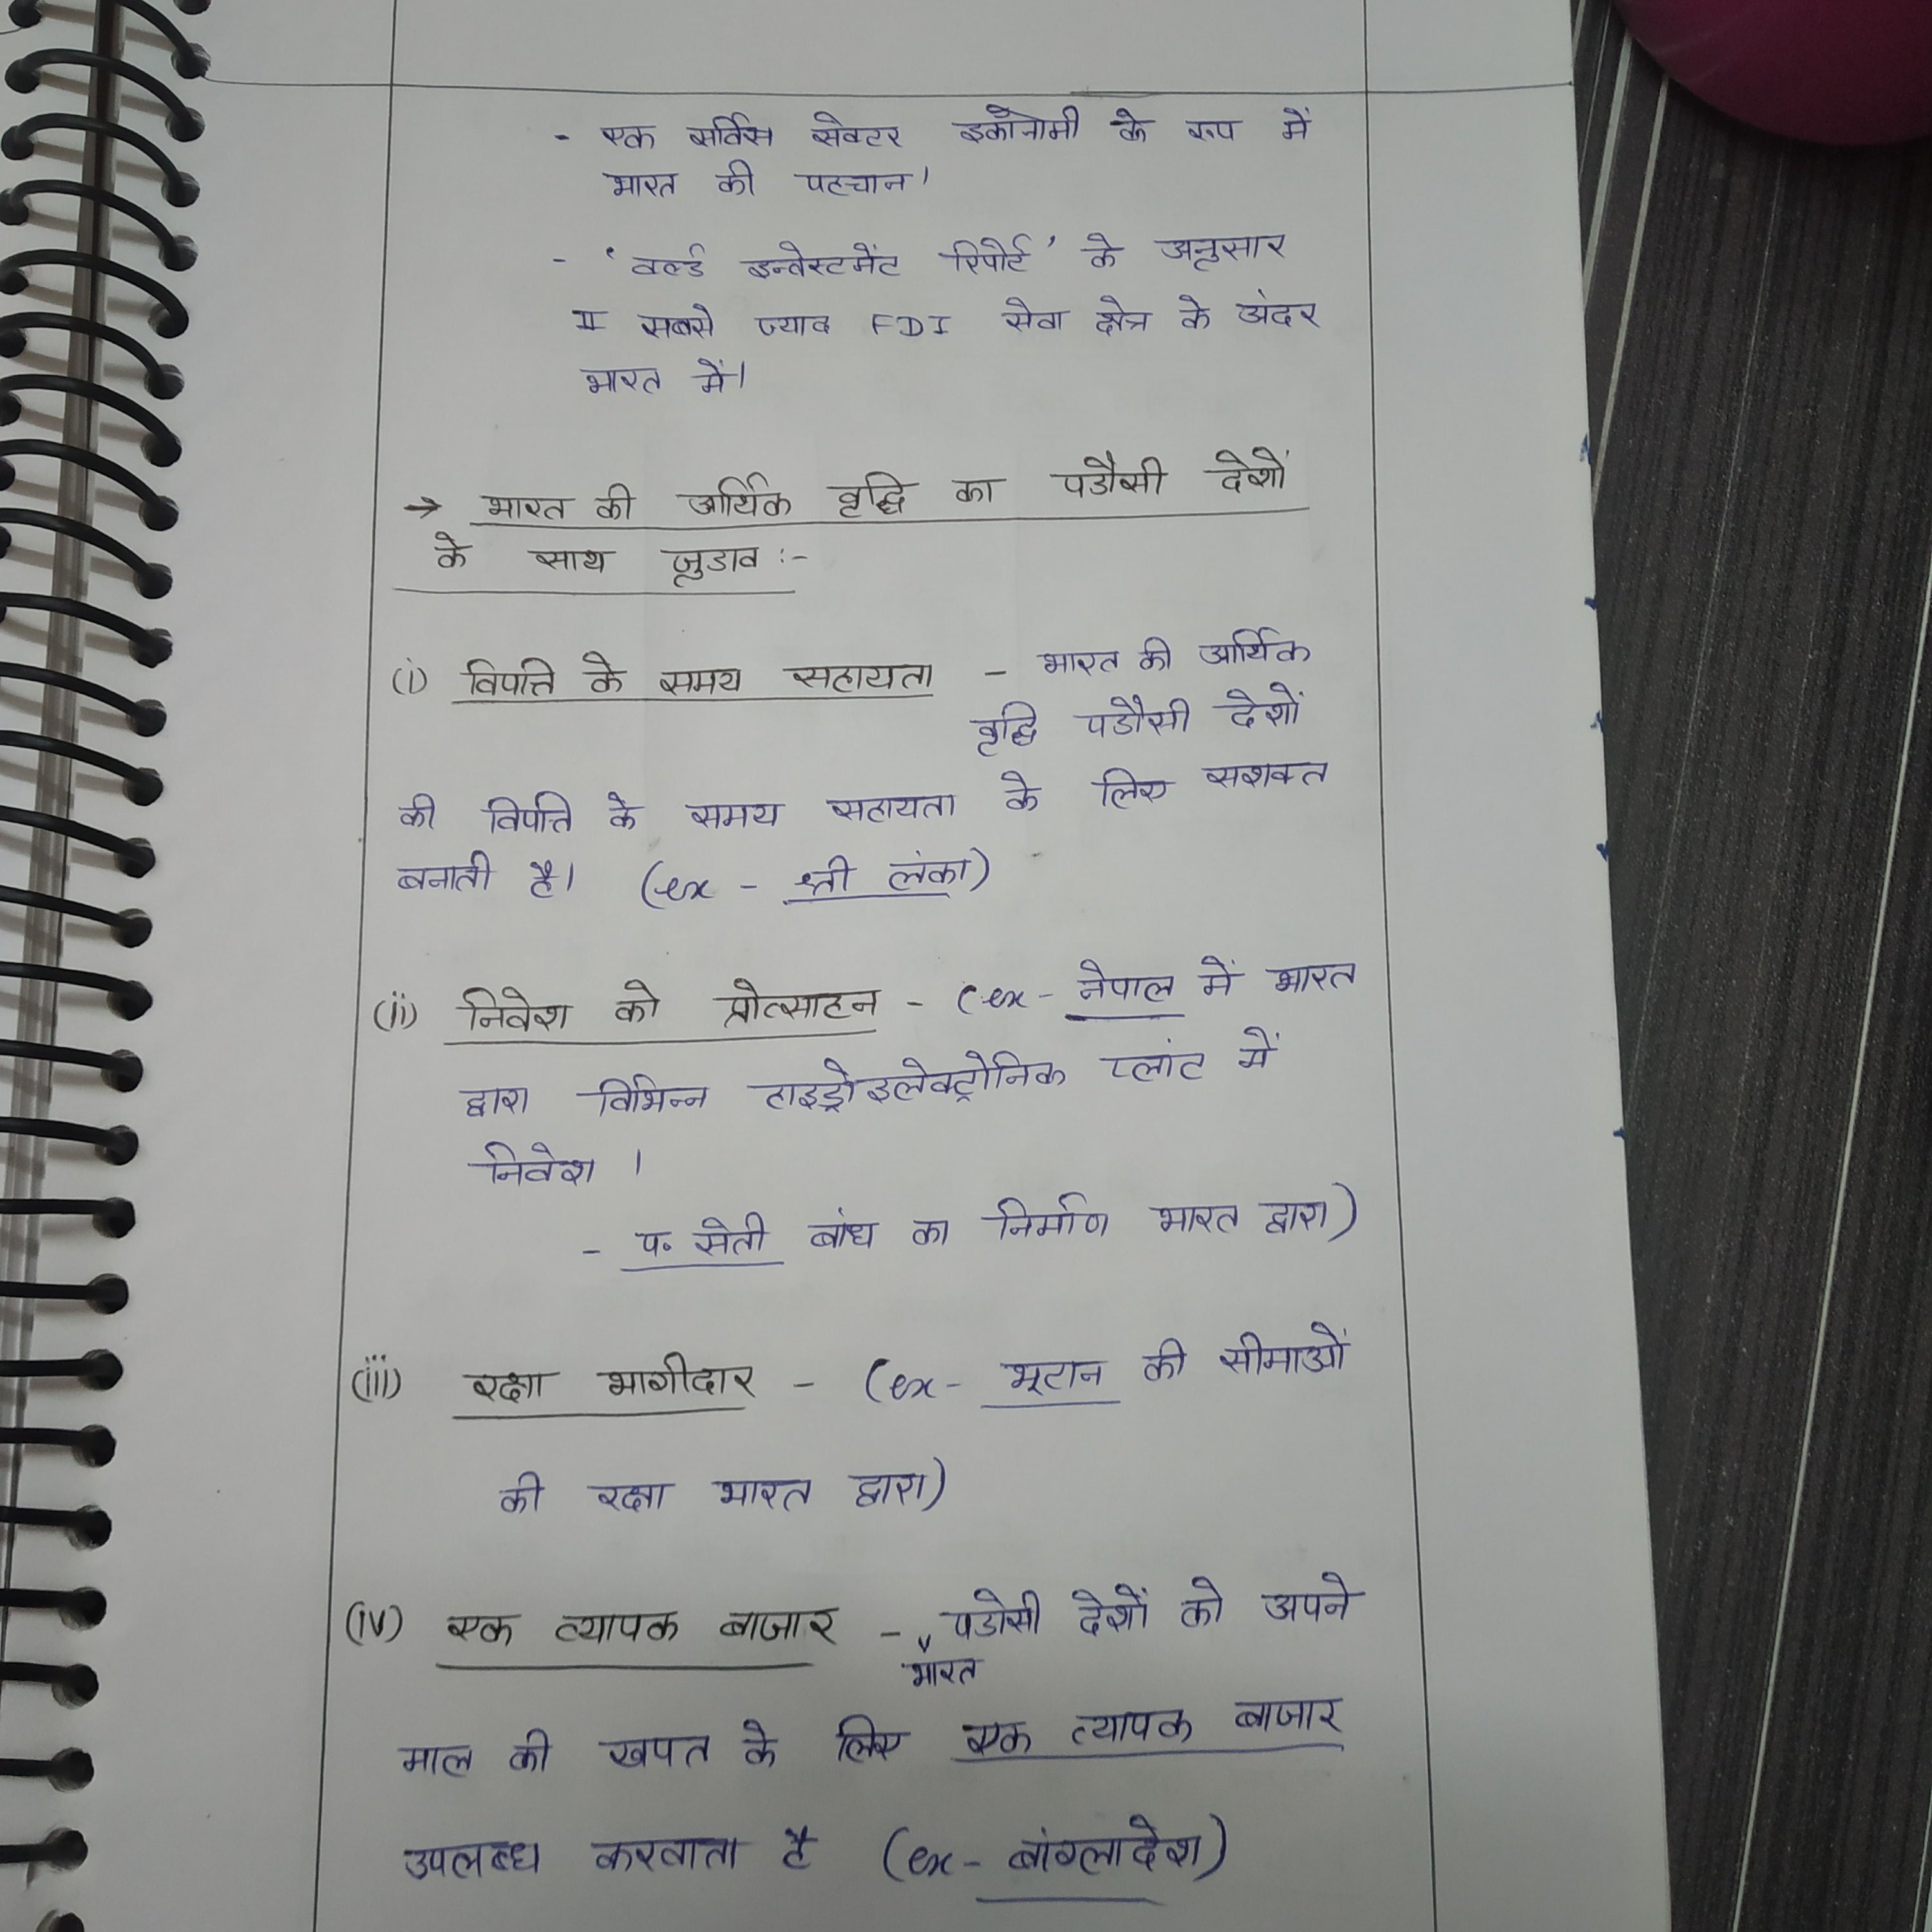 - एक सर्विस सेक्टर इकोनोमी के रूप में
भारत की पहचान।
- 'वर्ल्ड इन्वेस्टमेंट रिपोर्ट' के अनुसार
II सबसे ज्याद FDI सेवा क्षेत्र के अंदर
भारत में।
→ भारत की आर्थिक वृद्धि का पडौसी देशों
के साथ जुडाव :-
(i) विपत्ति के समय सहायता - भारत की आर्थिक
वृद्धि पडौसी देशों
की विपत्ति के समय सहायता के लिए सशक्त
बनाती है। (ex - श्री लंका)
(ii) निवेश को प्रोत्साहन - (ex - नेपाल में भारत
द्वारा विभिन्न हाइड्रोइलेक्ट्रोनिक प्लांट में
निवेश ।
- प. सेती बांध का निर्माण भारत द्वारा)
(iii) रक्षा भागीदार - (ex - भूटान की सीमाओं
की रक्षा भारत द्वारा)
(iv) एक व्यापक बाजार - पडोसी देशों को अपने
भारत
माल की खपत के लिए एक व्यापक बाजार
उपलब्ध करवाता है (ex - बांग्लादेश)